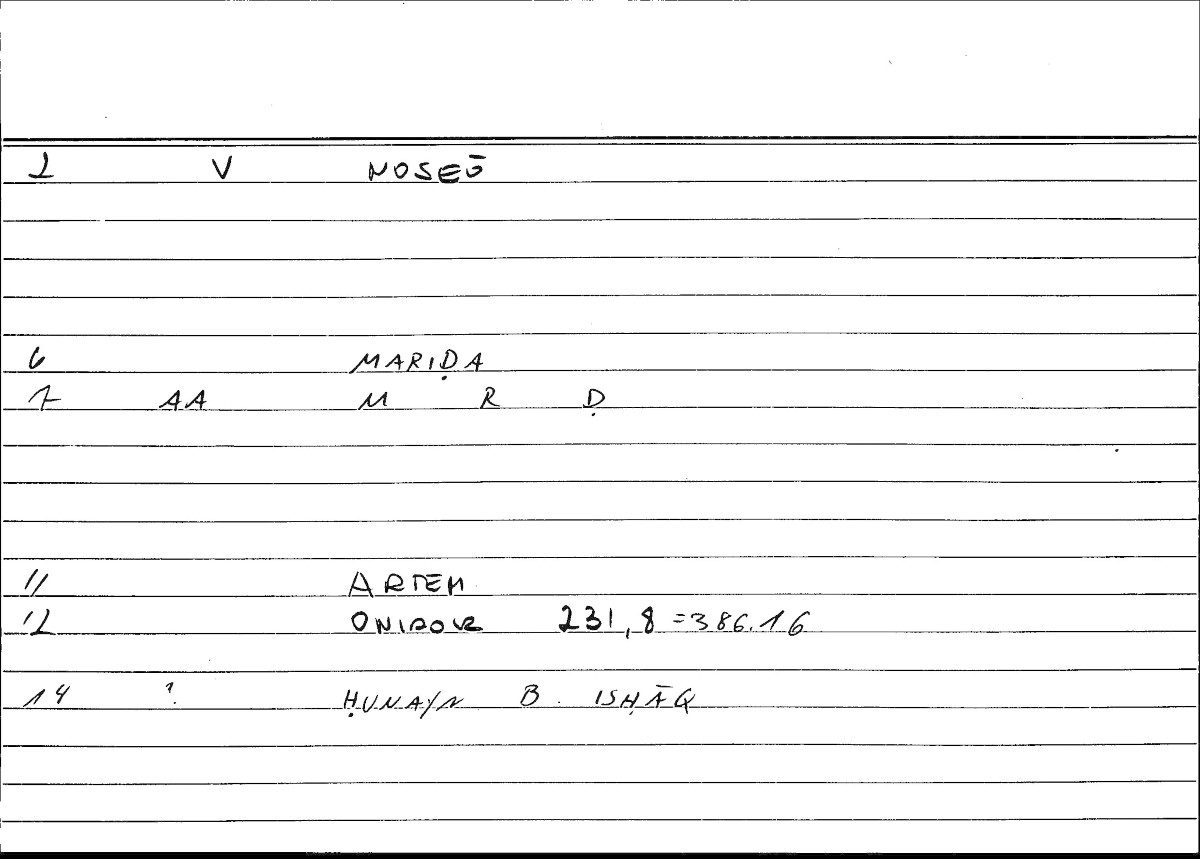 2 V NOSEŌ
6 MARIḌA
7 AA M R Ḍ
11 ARTEM
12 ONIROKR 231,8 =386.16
14 ? ḤUNAYN B. ISḤĀQ